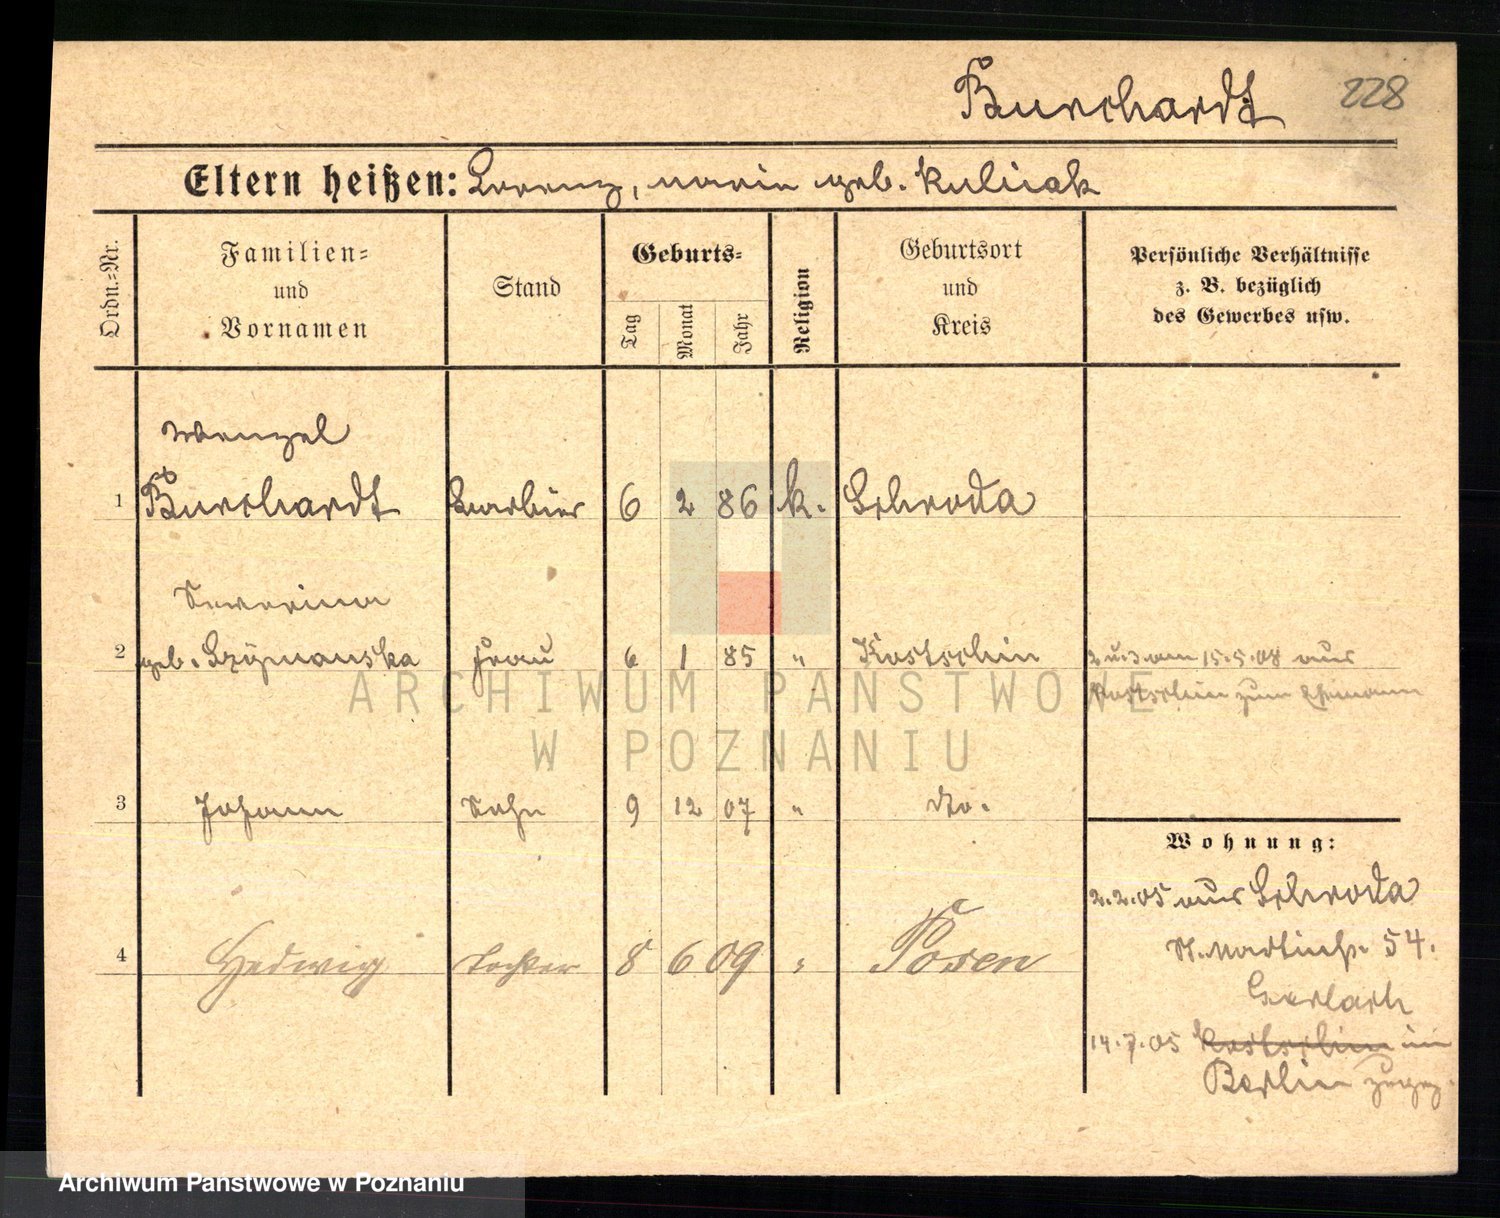 Burchardt
228
Eltern heißen: Lorenz, Marie geb. Kulińak
Ordn.-Nr.
Familien-
und
Vornamen
Stand
Geburts-
Tag
Monat
Jahr
Religion
Geburtsort
und
Kreis
Persönliche Verhältnisse
z. B. bezüglich
des Gewerbes usw.
Wenzel
1 Burchardt Barbier 6 2 86 k. Schroda
Severina
2 geb. Szymanska Frau 6 1 85 " Kostschin 2 u. 3 am 15.5.08 aus
Kostschin zum Ehemann
3 Johann Sohn 9 12 07 " do.
Wohnung:
2.2.05 aus Schroda
St. Martinstr. 54.
Gerlach
4 Hedwig Tochter 8 6 09 " Posen
14.7.05 Kostschin
Berlin
ARCHIWUM PAŃSTWOWE
W POZNANIU
Archiwum Państwowe w Poznaniu